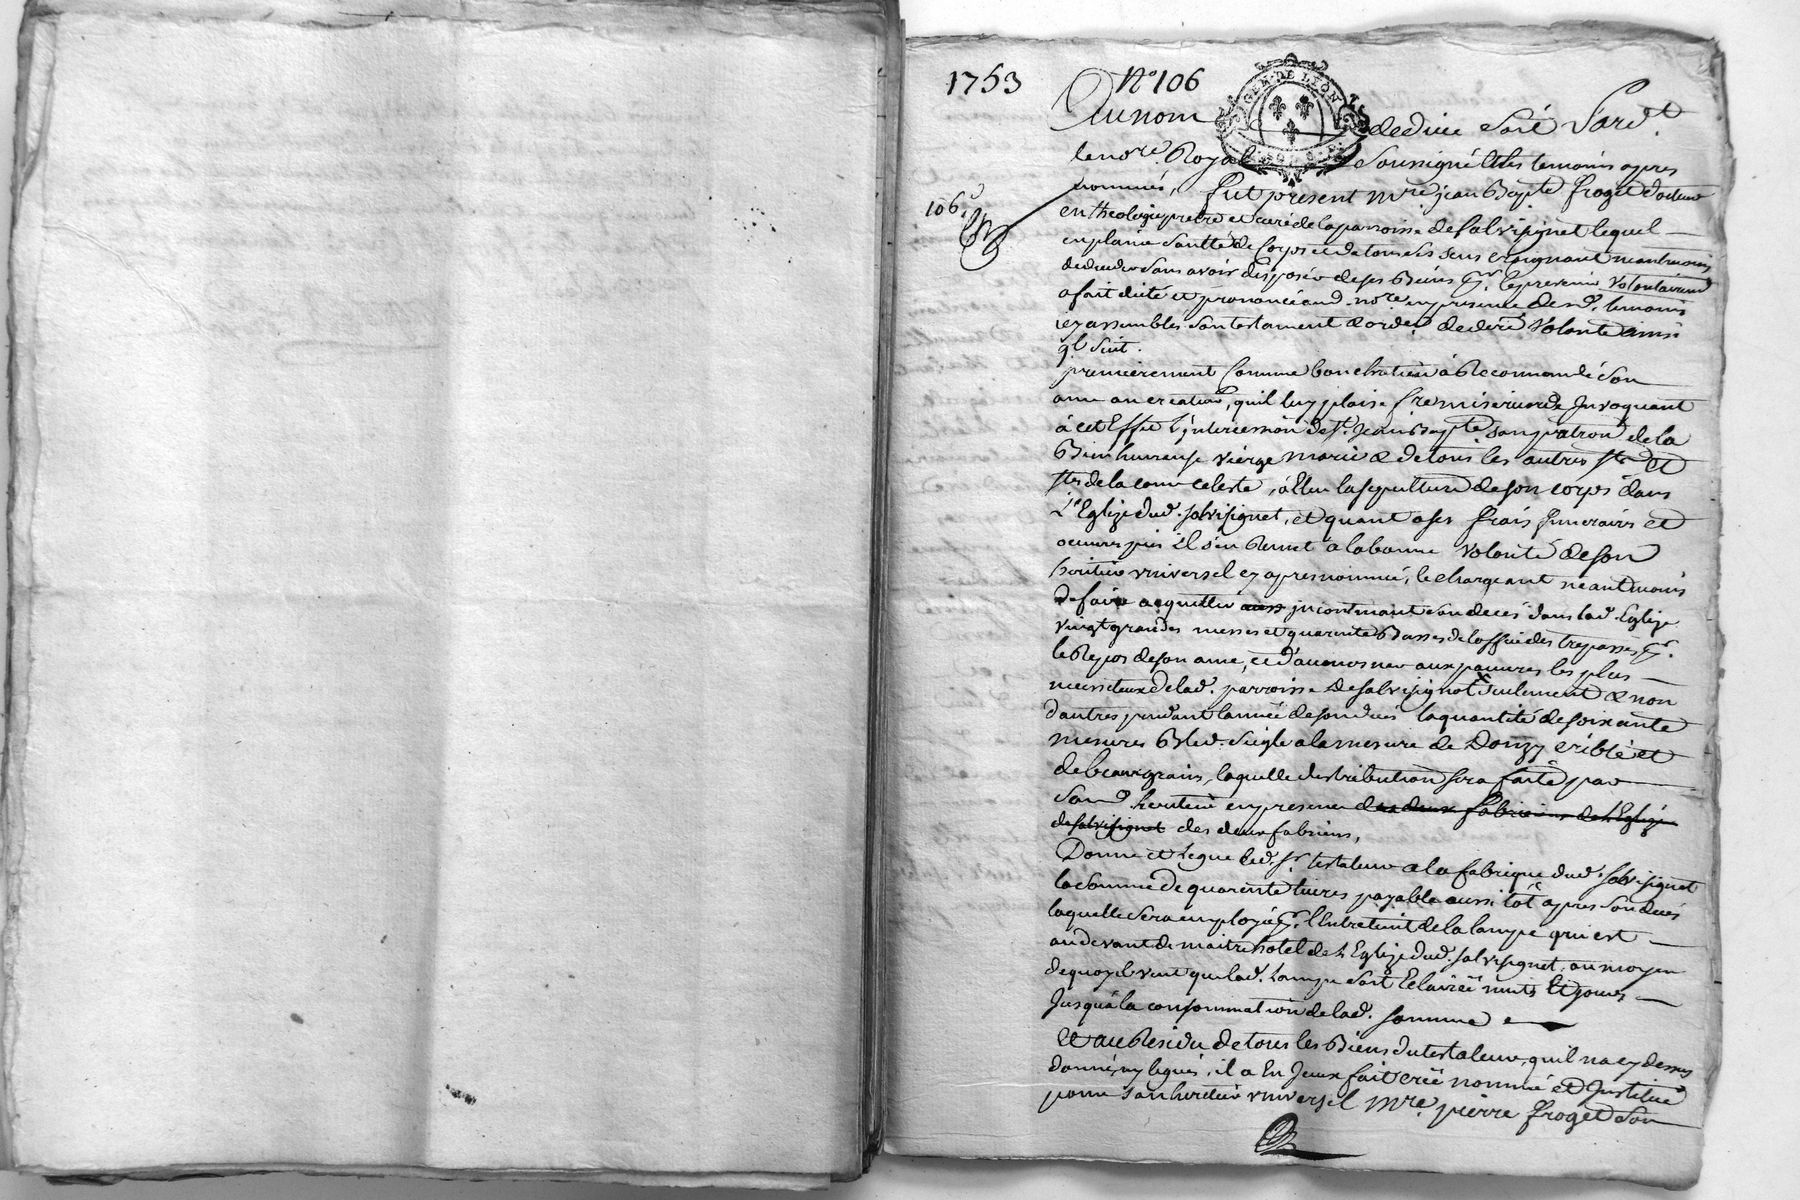 1753 N° 106
GEN. DE LYON
Au nom de dieu soit
le no.re Royal soussigné et les temoins apres
nommés, fut present m.re jean Bap.te froget docteur
106
en theologie pretre et curé de la parroisse de salvisinet lequel
en plaine santté de corps et de tous ses sens craignant neantmoins
de deceder sans avoir disposé de ses Biens p.r le present volontairem.t
a fait dicté et prononcé aud. no.re en presence desd. temoins
icy assemblés son testament & ordce de dere volonté ainsi
q.l suit.
premierement comme bon chretien à Recommandé son
ame au createur, qu'il luy plaise f.re misericorde Invoquant
à cet Effet L'intercession de s.t Jean Bap.te son patron de la
Bienheureuse vierge marie & de tous les autres s.ts et
s.tes de la cour celeste, à Elu la sepulture de son corps dans
L'Eglize dud. salvisignet, et quant a ses frais funeraires et
oeuvres pies il s'en Remet à la bonne volonté de son
heritier vniversel cy apres nommé, le chargeant neantmoins
de faire acquitter incontinant son decés dans lad. Eglize
vingt grandes messes et quarente Basses de l'office des trepassés p.r
le Repos de son ame, et d'aumosner aux pauvres les plus
necessiteux de lad. parroisse de salvisignet seulement & non
d'autres pendant l'année de son decés la quantité de soixante
mesures Bled seigle a la mesure de Donzy criblé et
de beaux grains, laquelle distribution sera faite par
sond. heritier en presence des deux fabriciens de L'Eglize
de salvisignet des deux fabriciens,
Donne et Legue led. s.r testateur a la fabrique dud. salvisignet
la somme de quarente livres payable aussi tôt apres son decés
laquelle sera employée p.r l'entretient de la lampe qui est
au devant de maitre hotel de L'Eglize dud. salvisignet, au moyen
de quoy il veut que lad. Lampe soit Eclairée nuits Et jours
Jusqu'à la consommation de lad. somme
Et au Residu de tous les Biens du testateur, qu'il na cy dessus
donnés, ny legués, il a En Jceux fait créé nommé et Institué
pour son heritier vniversel m.re pierre froget son